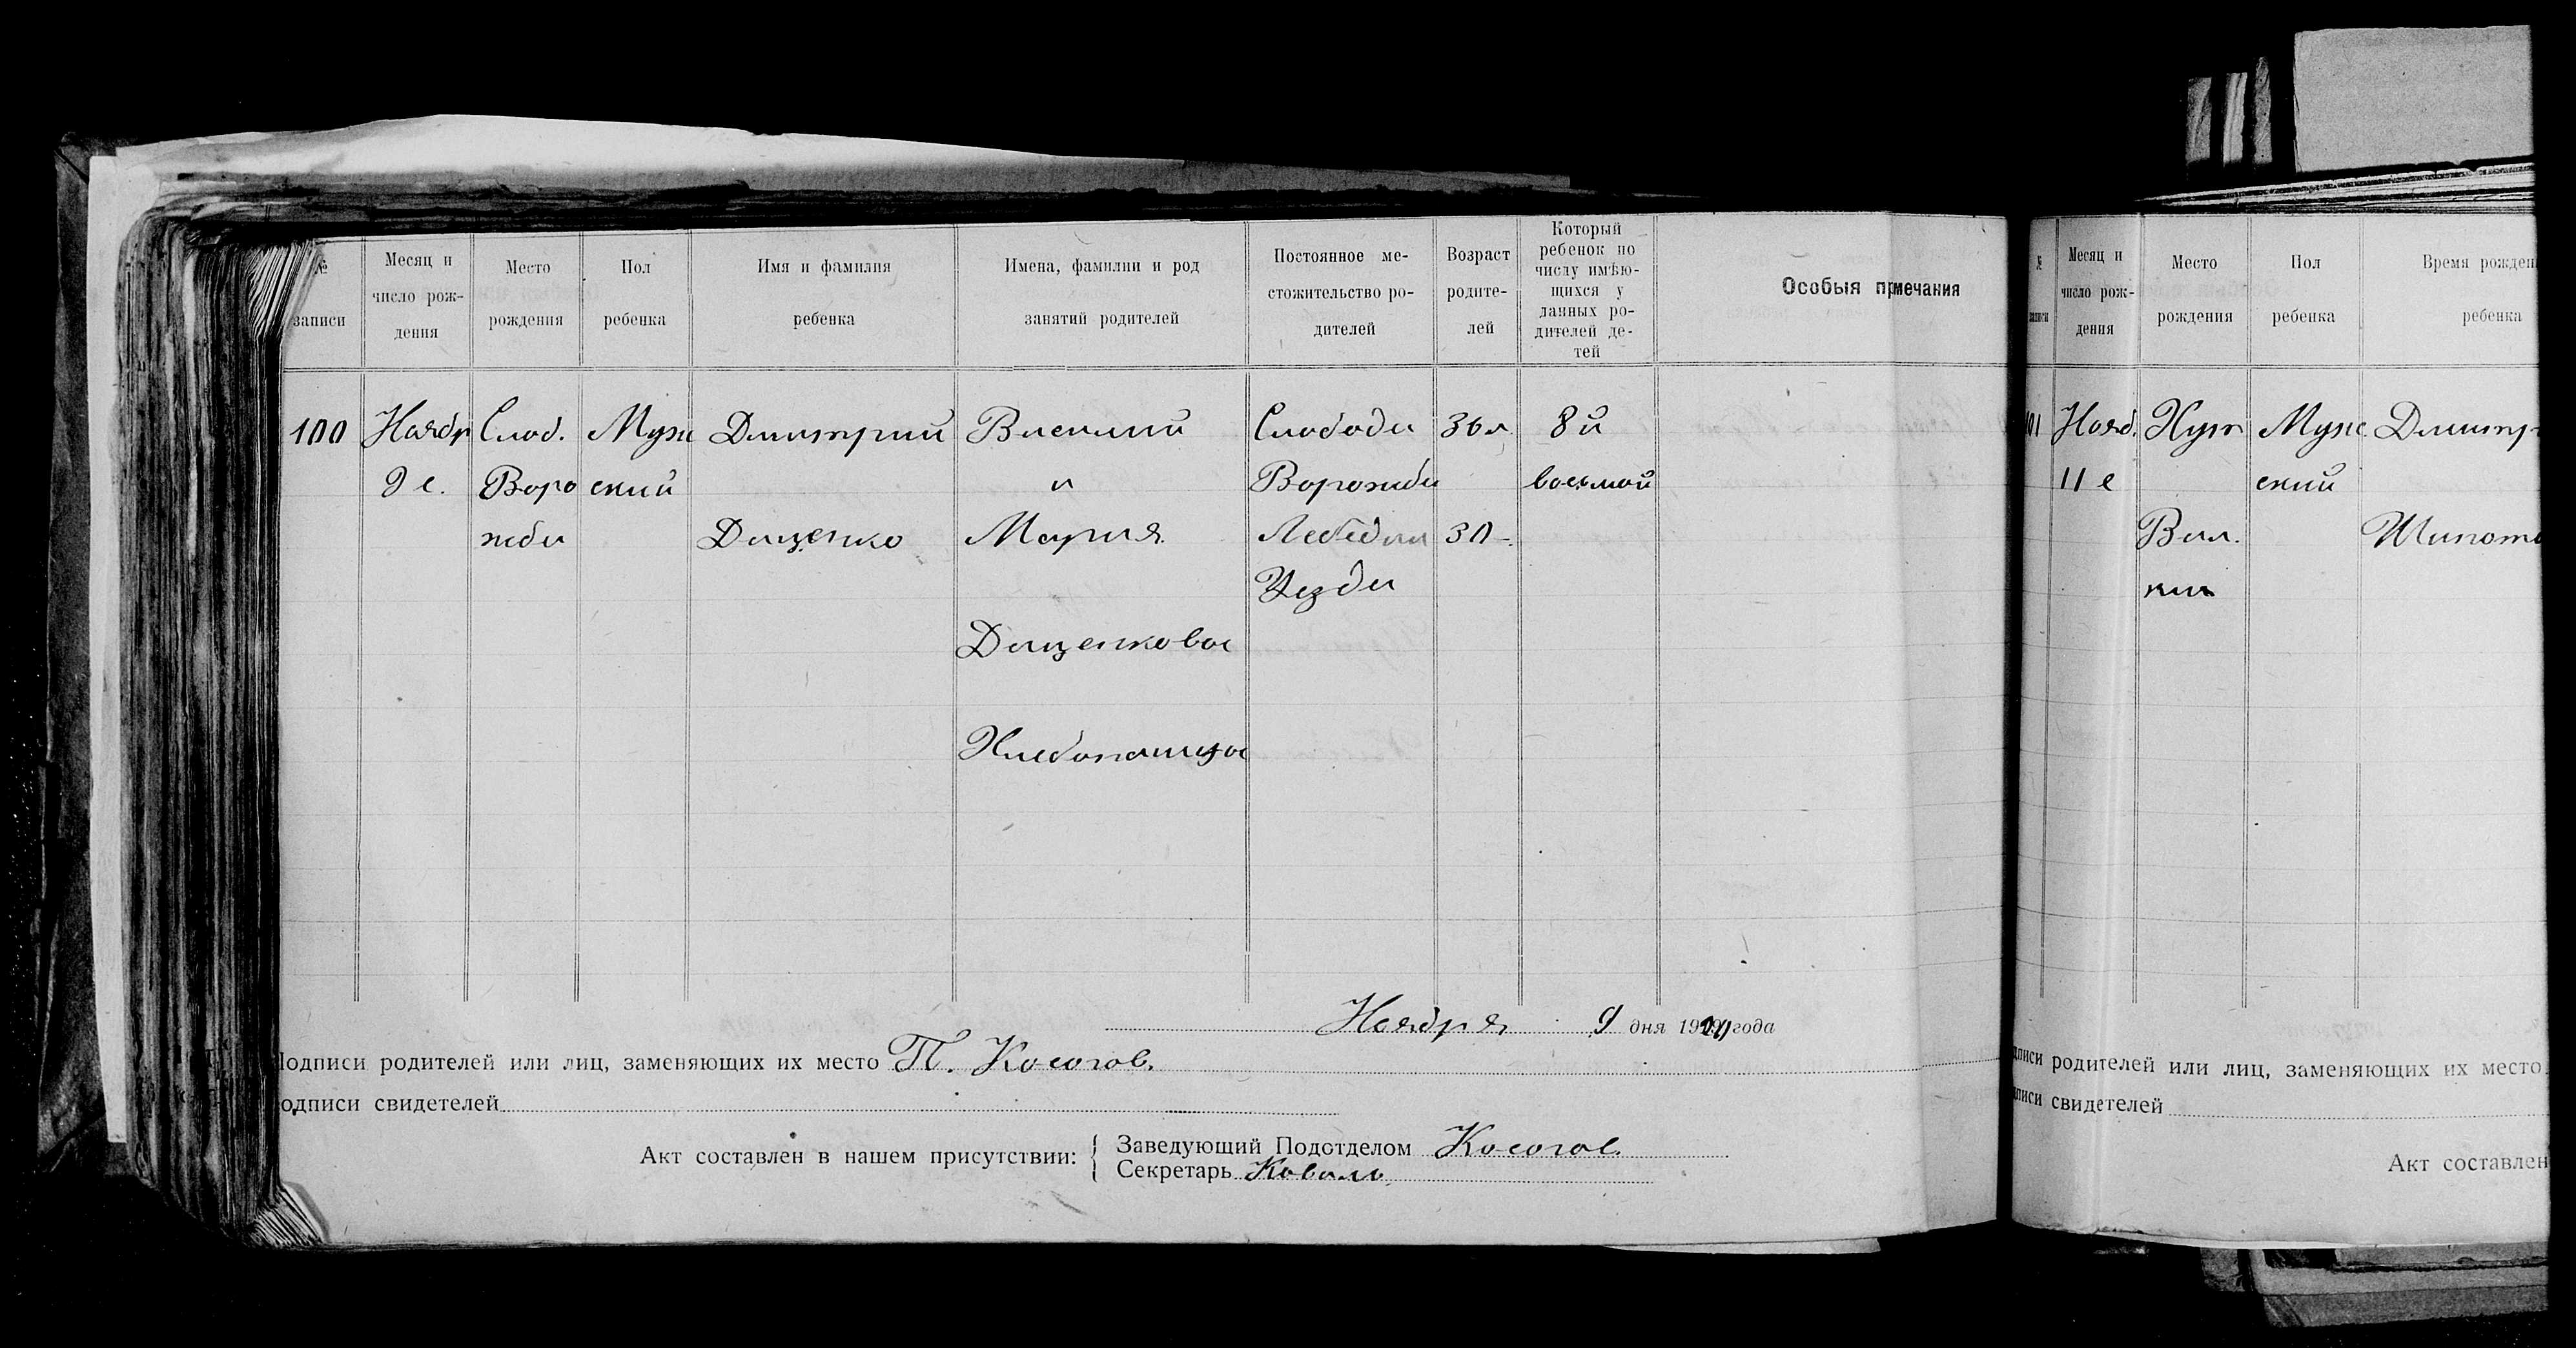 № записи
Месяц и число рождения
Место рождения
Пол ребенка
Имя и фамилия ребенка
Имена, фамилии и род занятий родителей
Постоянное местожительство родителей
Возраст родителей
Который ребенок по числу имѣющихся у данных родителей детей
Особыя примечания
100 Ноябр Слоб. Муж Дмитрий Василий Слободы 36 л 8й
9 е. Воро ский и Ворожбы восьмой
жбы Дыценко Мария Лебедин 30
Уезда
Дыценковы
Хлебопашцы
Ноября 9 дня 1920 года
Подписи родителей или лиц, заменяющих их место П. Косогов.
одписи свидетелей
Акт составлен в нашем присутствии:
Заведующий Подотделом Косогов.
Секретарь Коваль
№ записи
Месяц и число рождения
Место рождения
Пол ребенка
Время рожден
ребенка
101 Нояб. Хут Муж Дмитр
11 е ский
Вил.
родителей или лиц, заменяющих их место
свидетелей
Акт составлен